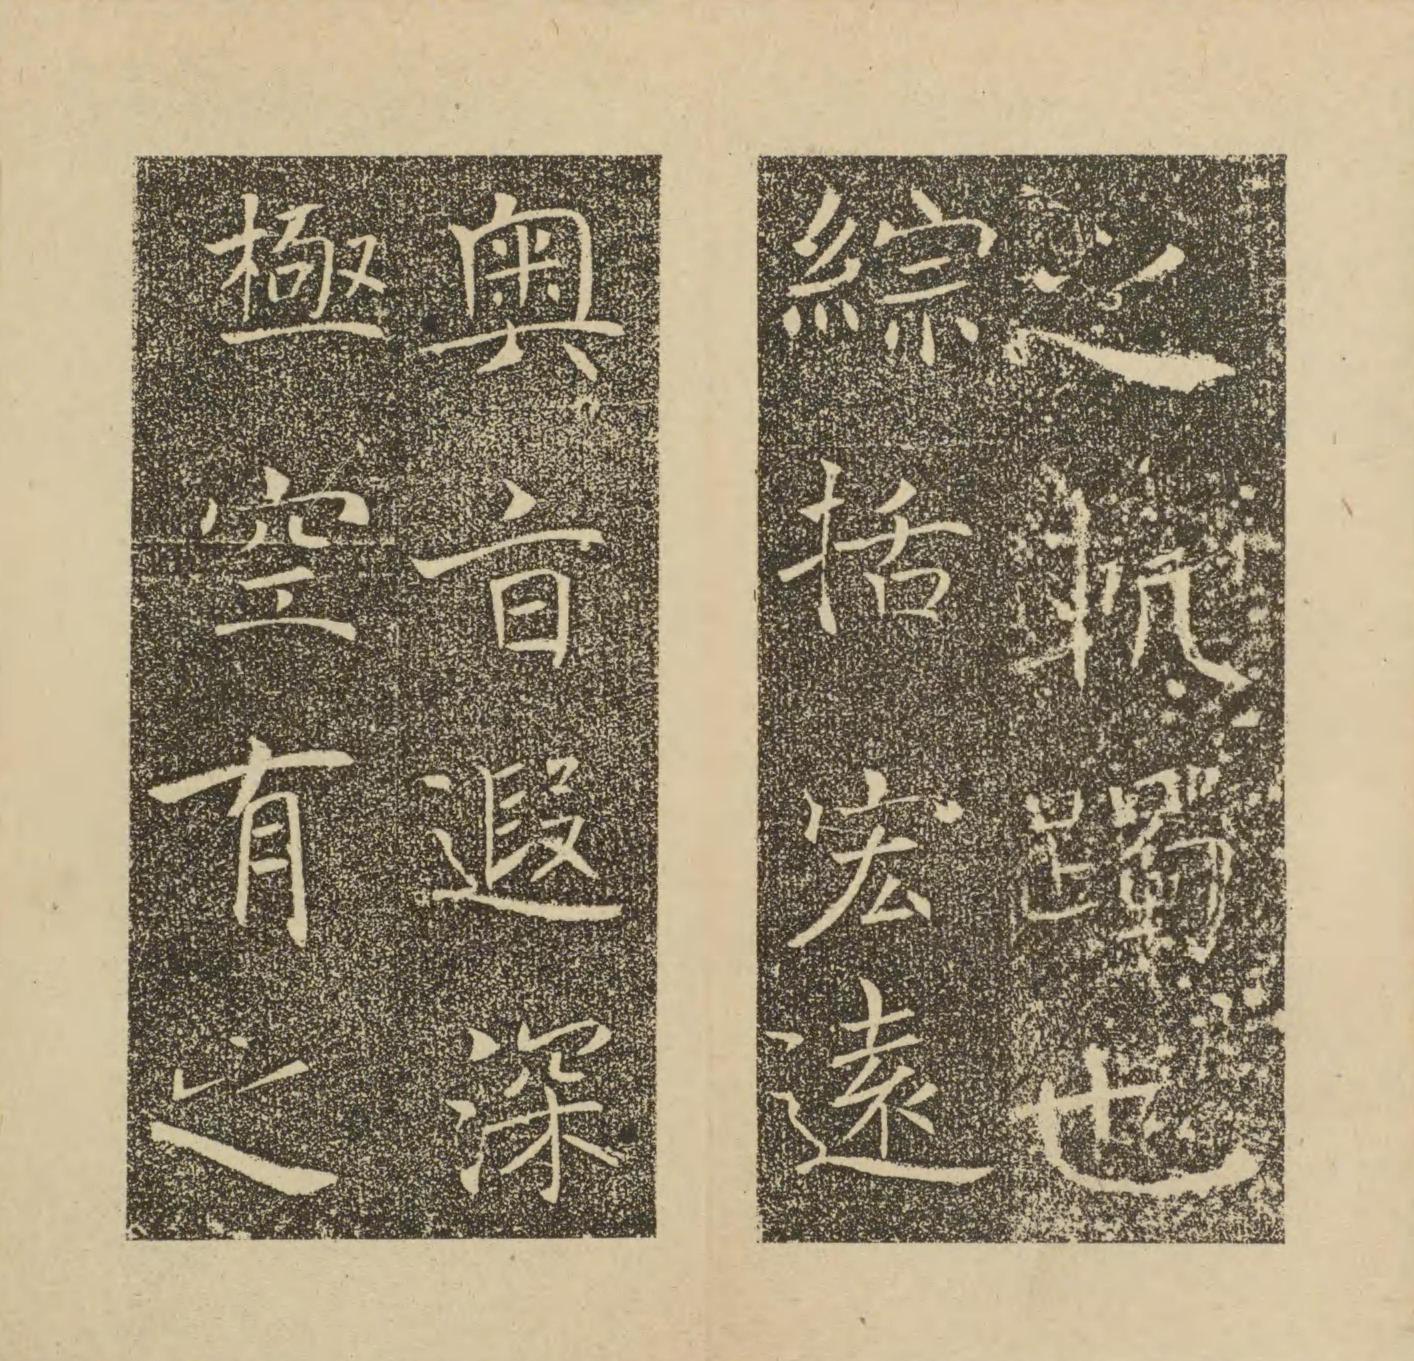 之軌躅也
綜括宏遠
奧旨遐深
極空有之